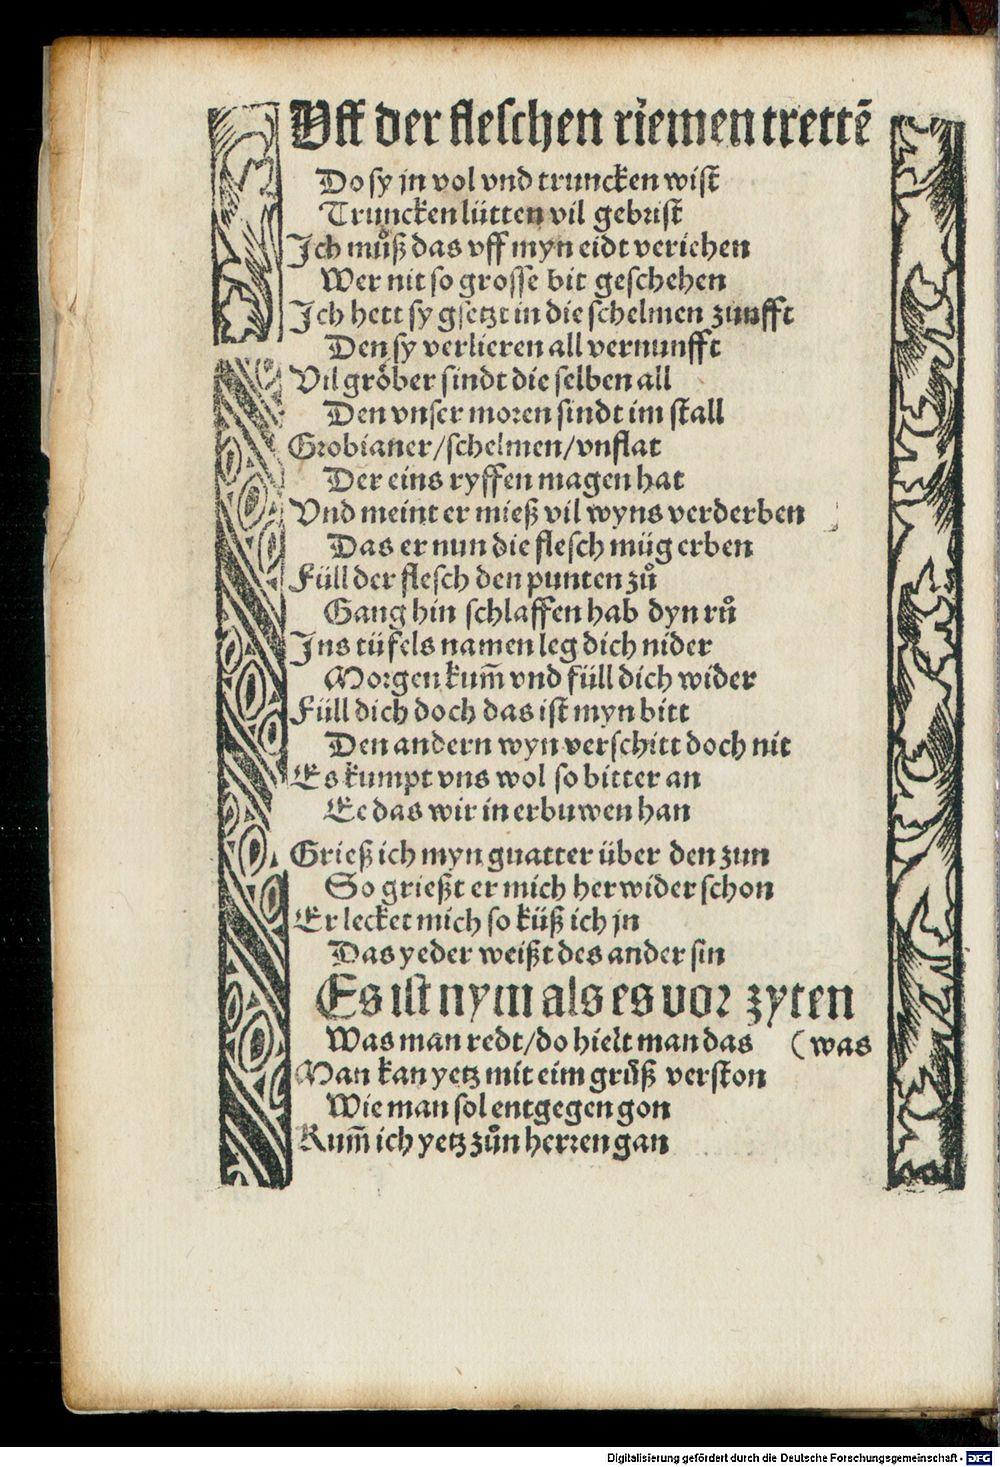 Uff der fleschen riemen trettē
Do sy jn vol vnd truncken wist
Truncken lütten vil gebrist
Ich můß das vff myn eidt veriehen
Wer nit so grosse bit geschehen
Ich hett sy gsetzt in die schelmen zunfft
Den sy verlieren all vernunfft
Vil gröber sindt die selben all
Den vnser moren sindt im stall
Grobianer/schelmen/vnflat
Der eins ryffen magen hat
Vnd meint er mieß vil wyns verderben
Das er nun die flesch müg erben
Füll der flesch den punten zů
Gang hin schlaffen hab dyn rů
Ins tüfels namen leg dich nider
Morgen kum̄ vnd füll dich wider
Füll dich doch das ist myn bitt
Den andern wyn verschitt doch nit
Es kumpt vns wol so bitter an
Ee das wir in erbuwen han
Grieß ich myn guatter über den zun
So grießt er mich herwider schon
Er lecket mich so küß ich jn
Das yeder weißt des ander sin
Es ist nym als es vor zyten
Was man redt/do hielt man das (was
Man kan yetz mit eim grůß verston
Wie man sol entgegen gon
Kum̄ ich yetz zůn herren gan
Digitalisierung gefördert durch die Deutsche Forschungsgemeinschaft - DFG